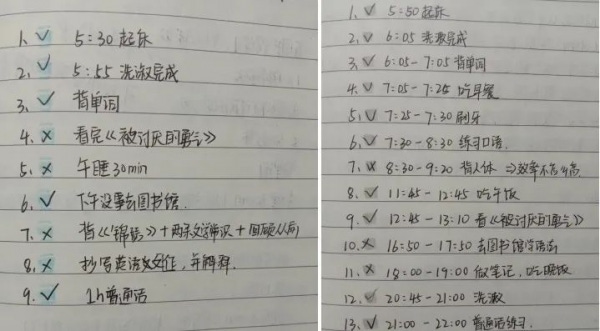 1. ✓ 5:30起床
2. ✓ 5:55 洗漱完成
3. ✓ 背单词
4. × 看完《被讨厌的勇气》
5. × 午睡30min
6. ✓ 下午没事去图书馆.
7. × 背《锦囊》+ 两条文学常识 + 回顾
8. × 抄写英语作文,并翻译.
9. ✓ 1h普通话
1. ✓ 5:50起床
2. ✓ 6:05 洗漱完成
3. ✓ 6:05-7:05 背单词
4. ✓ 7:05-7:25 吃早餐
5. ✓ 7:25-7:30 刷牙
6. ✓ 7:30-8:30 练习口语.
7. × 8:30-9:20 背人体 ⇒效率不高
8. ✓ 11:45-12:45 吃午饭
9. ✓ 12:45-13:10 看《被讨厌的勇气》
10. × 16:50-17:50 去图书馆学语言
11. × 18:00-19:00 做笔记,吃晚饭
12. ✓ 20:45-21:00 洗漱
13. ✓ 21:00-22:00 普通话练习.